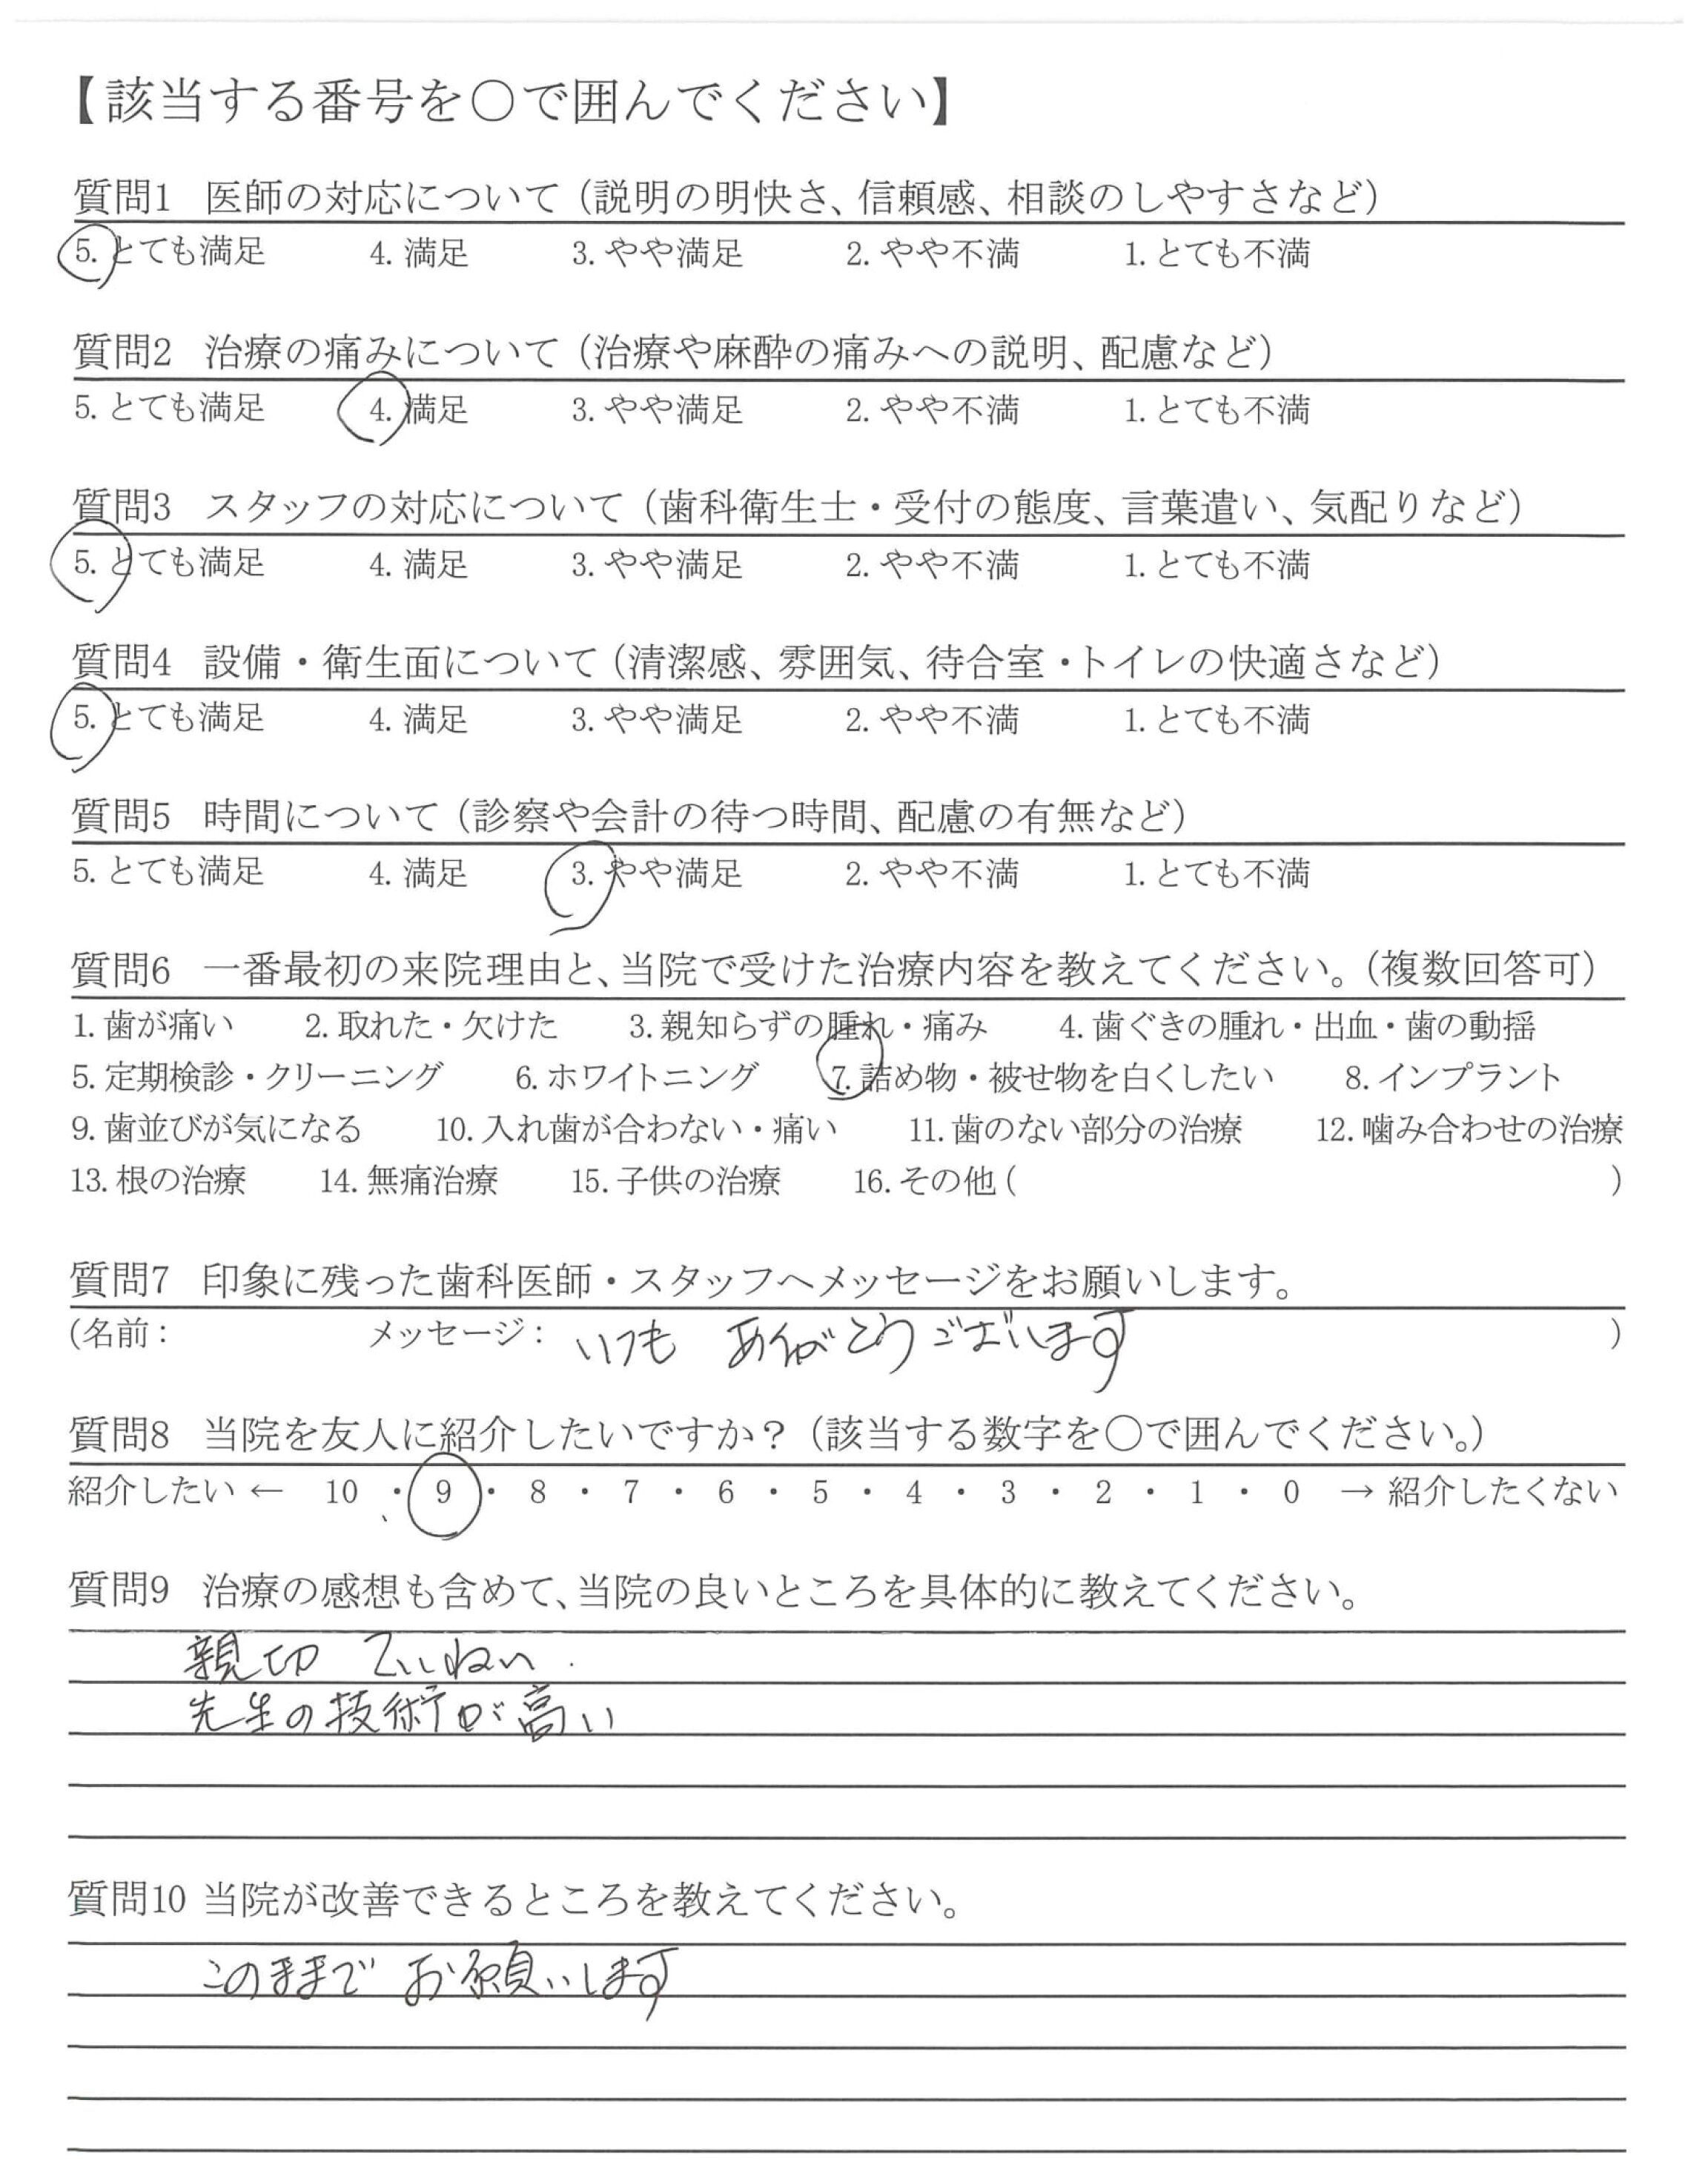 【該当する番号を〇で囲んでください】
質問1 医師の対応について（説明の明快さ、信頼感、相談のしやすさなど）
5. とても満足 4. 満足 3. やや満足 2. やや不満 1. とても不満
質問2 治療の痛みについて（治療や麻酔の痛みへの説明、配慮など）
5. とても満足 4. 満足 3. やや満足 2. やや不満 1. とても不満
質問3 スタッフの対応について（歯科衛生士・受付の態度、言葉遣い、気配りなど）
5. とても満足 4. 満足 3. やや満足 2. やや不満 1. とても不満
質問4 設備・衛生面について（清潔感、雰囲気、待合室・トイレの快適さなど）
5. とても満足 4. 満足 3. やや満足 2. やや不満 1. とても不満
質問5 時間について（診察や会計の待つ時間、配慮の有無など）
5. とても満足 4. 満足 3. やや満足 2. やや不満 1. とても不満
質問6 一番最初の来院理由と、当院で受けた治療内容を教えてください。（複数回答可）
1. 歯が痛い 2. 取れた・欠けた 3. 親知らずの腫れ・痛み 4. 歯ぐきの腫れ・出血・歯の動揺
5. 定期検診・クリーニング 6. ホワイトニング 7. 詰め物・被せ物を白くしたい 8. インプラント
9. 歯並びが気になる 10. 入れ歯が合わない・痛い 11. 歯のない部分の治療 12. 噛み合わせの治療
13. 根の治療 14. 無痛治療 15. 子供の治療 16. その他（ ）
質問7 印象に残った歯科医師・スタッフへメッセージをお願いします。
（名前： メッセージ： いつも ありがとうございます ）
質問8 当院を友人に紹介したいですか？（該当する数字を〇で囲んでください。）
紹介したい ← 10 ・ 9 ・ 8 ・ 7 ・ 6 ・ 5 ・ 4 ・ 3 ・ 2 ・ 1 ・ 0 → 紹介したくない
質問9 治療の感想も含めて、当院の良いところを具体的に教えてください。
親切 ていねい
先生の技術が高い
質問10 当院が改善できるところを教えてください。
このままで お願いします